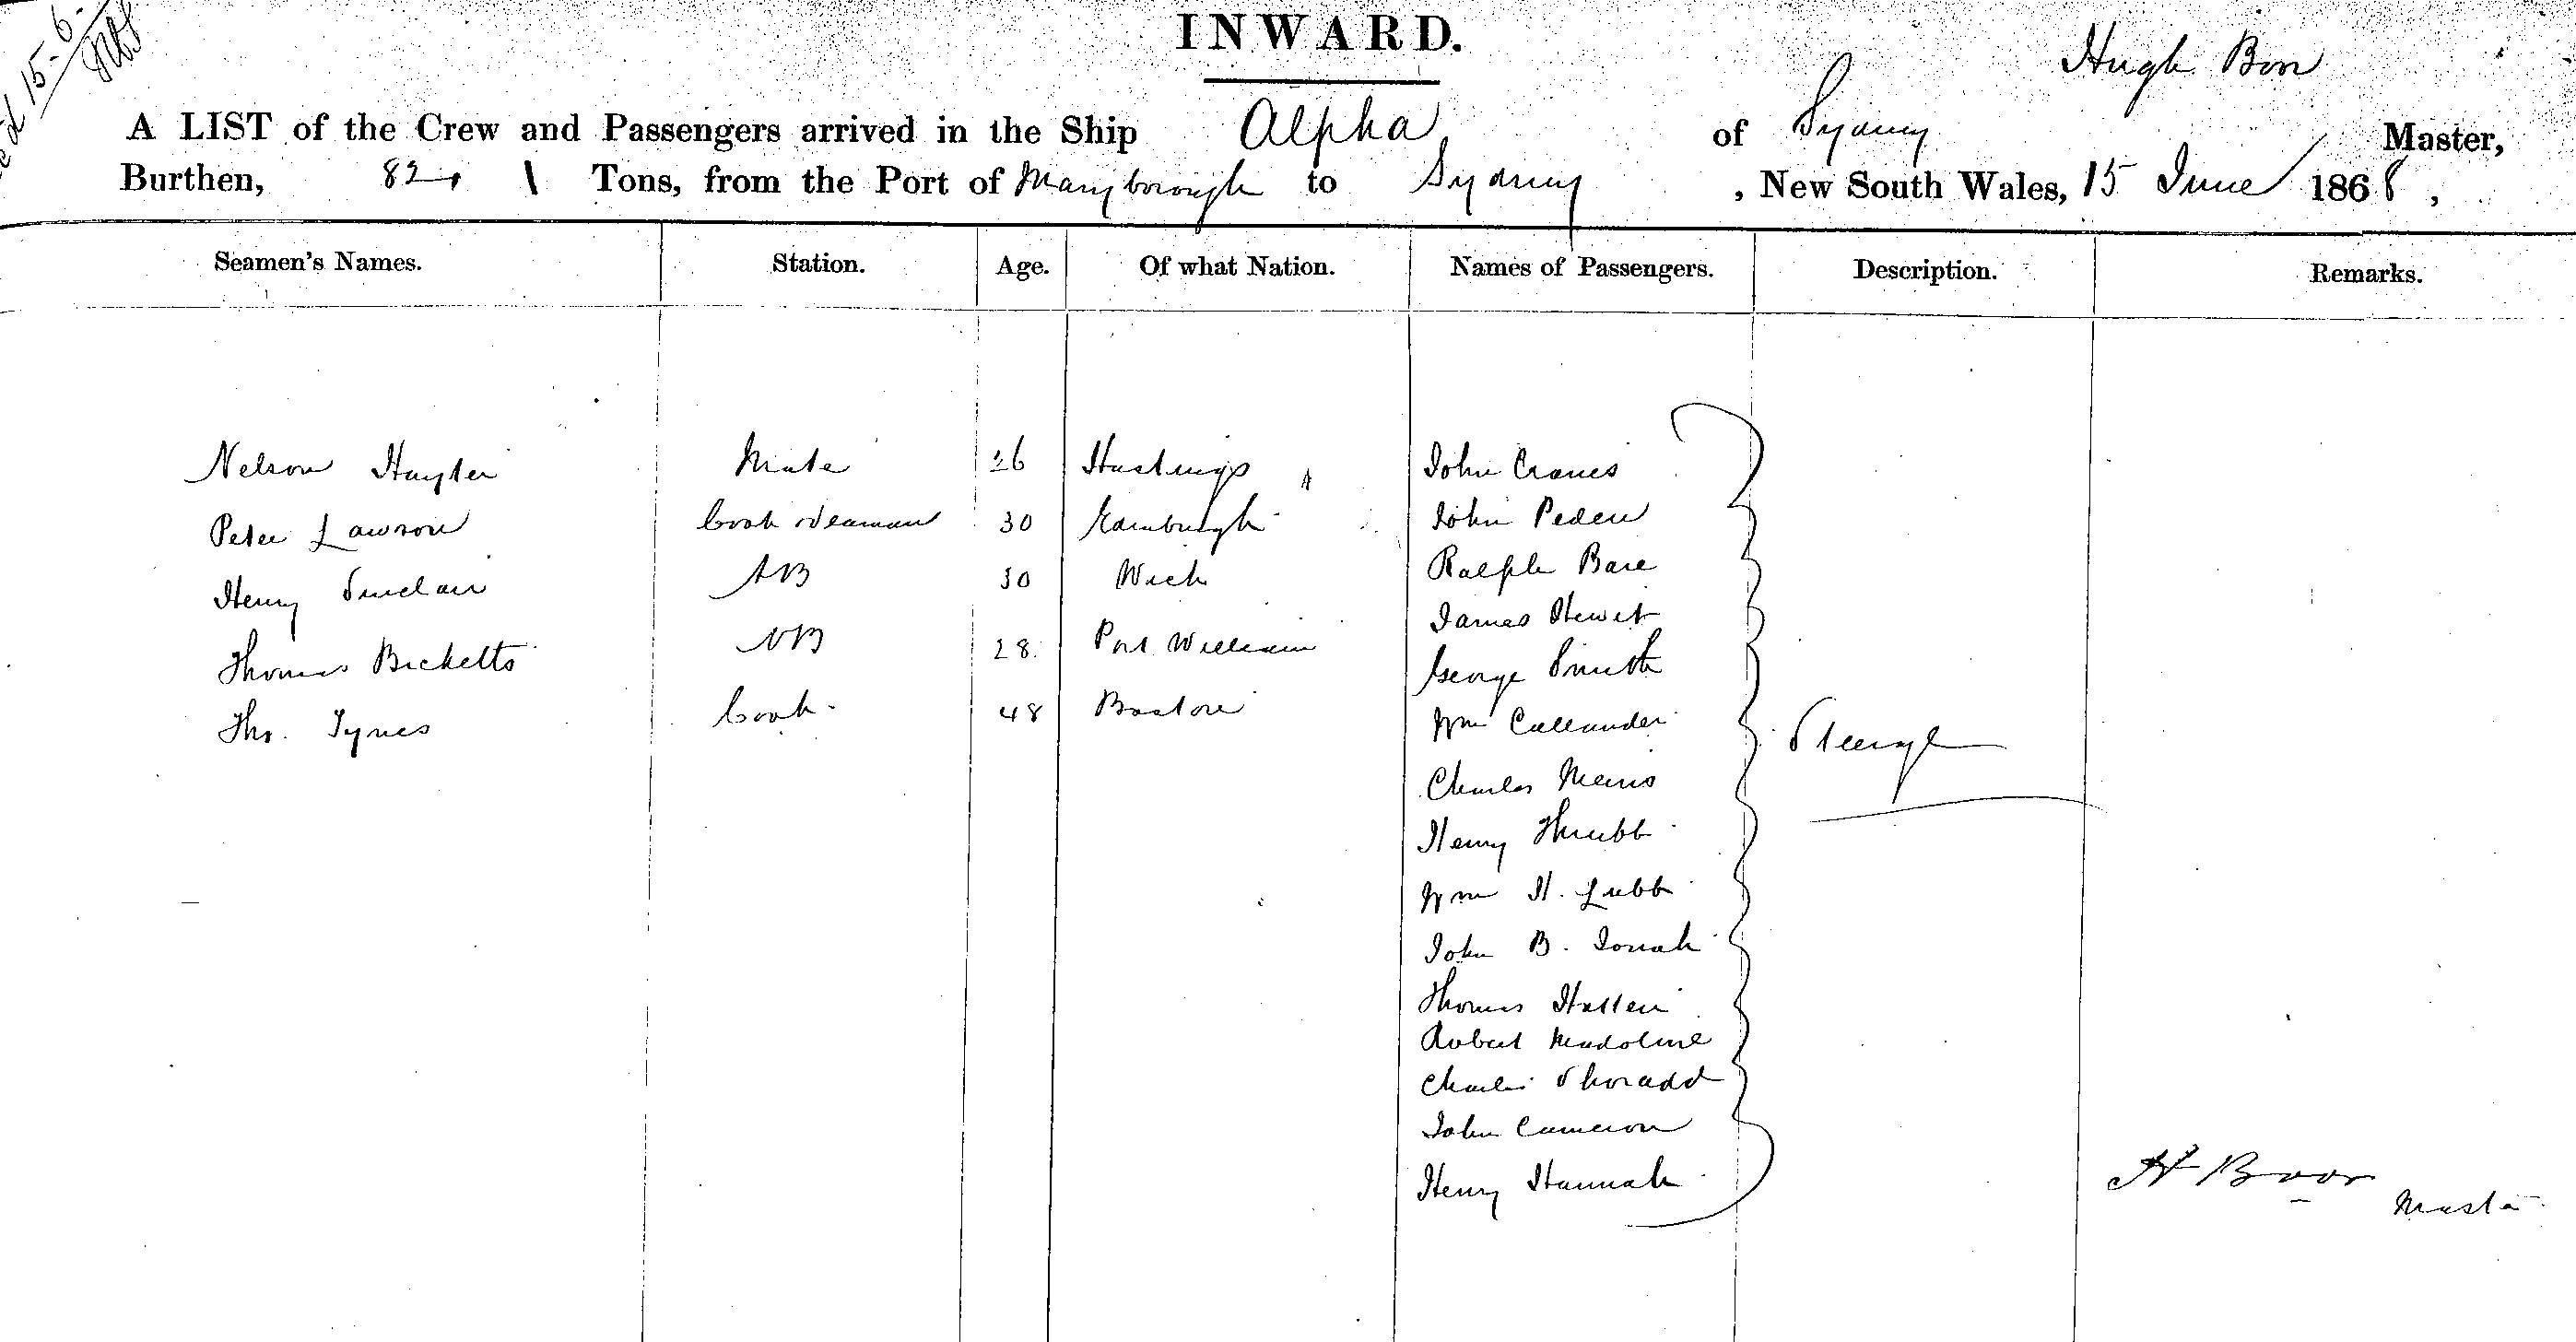 15-6-
INWARD.
Hugh Bon
A LIST of the Crew and Passengers arrived in the Ship Alpha of Sydney Master,
Burthen, 82 Tons, from the Port of Maryborough to Sydney, New South Wales, 15 June 1868,
Seamen's Names. Station. Age. Of what Nation. Names of Passengers. Description. Remarks.
Nelson Hayter Mate 26 Hastings John Cranes
Peter Lawson Cook & Seaman 30 Edinburgh John Peden
Henry Sinclair AB 30 Wick Ralph Bare
James Hewit
Thomas Bicketts AB 28 Port William George Smith
Tho. Tynes Cook 48 Boston Wm Callander
Steerage
Charles Mems
Henry Thrubb
Wm H. Lubb
John B. Jonah
Thomas Hatten
Robert
Charles Shoradd
John Cameron
Henry Hannah
H Boor
Master